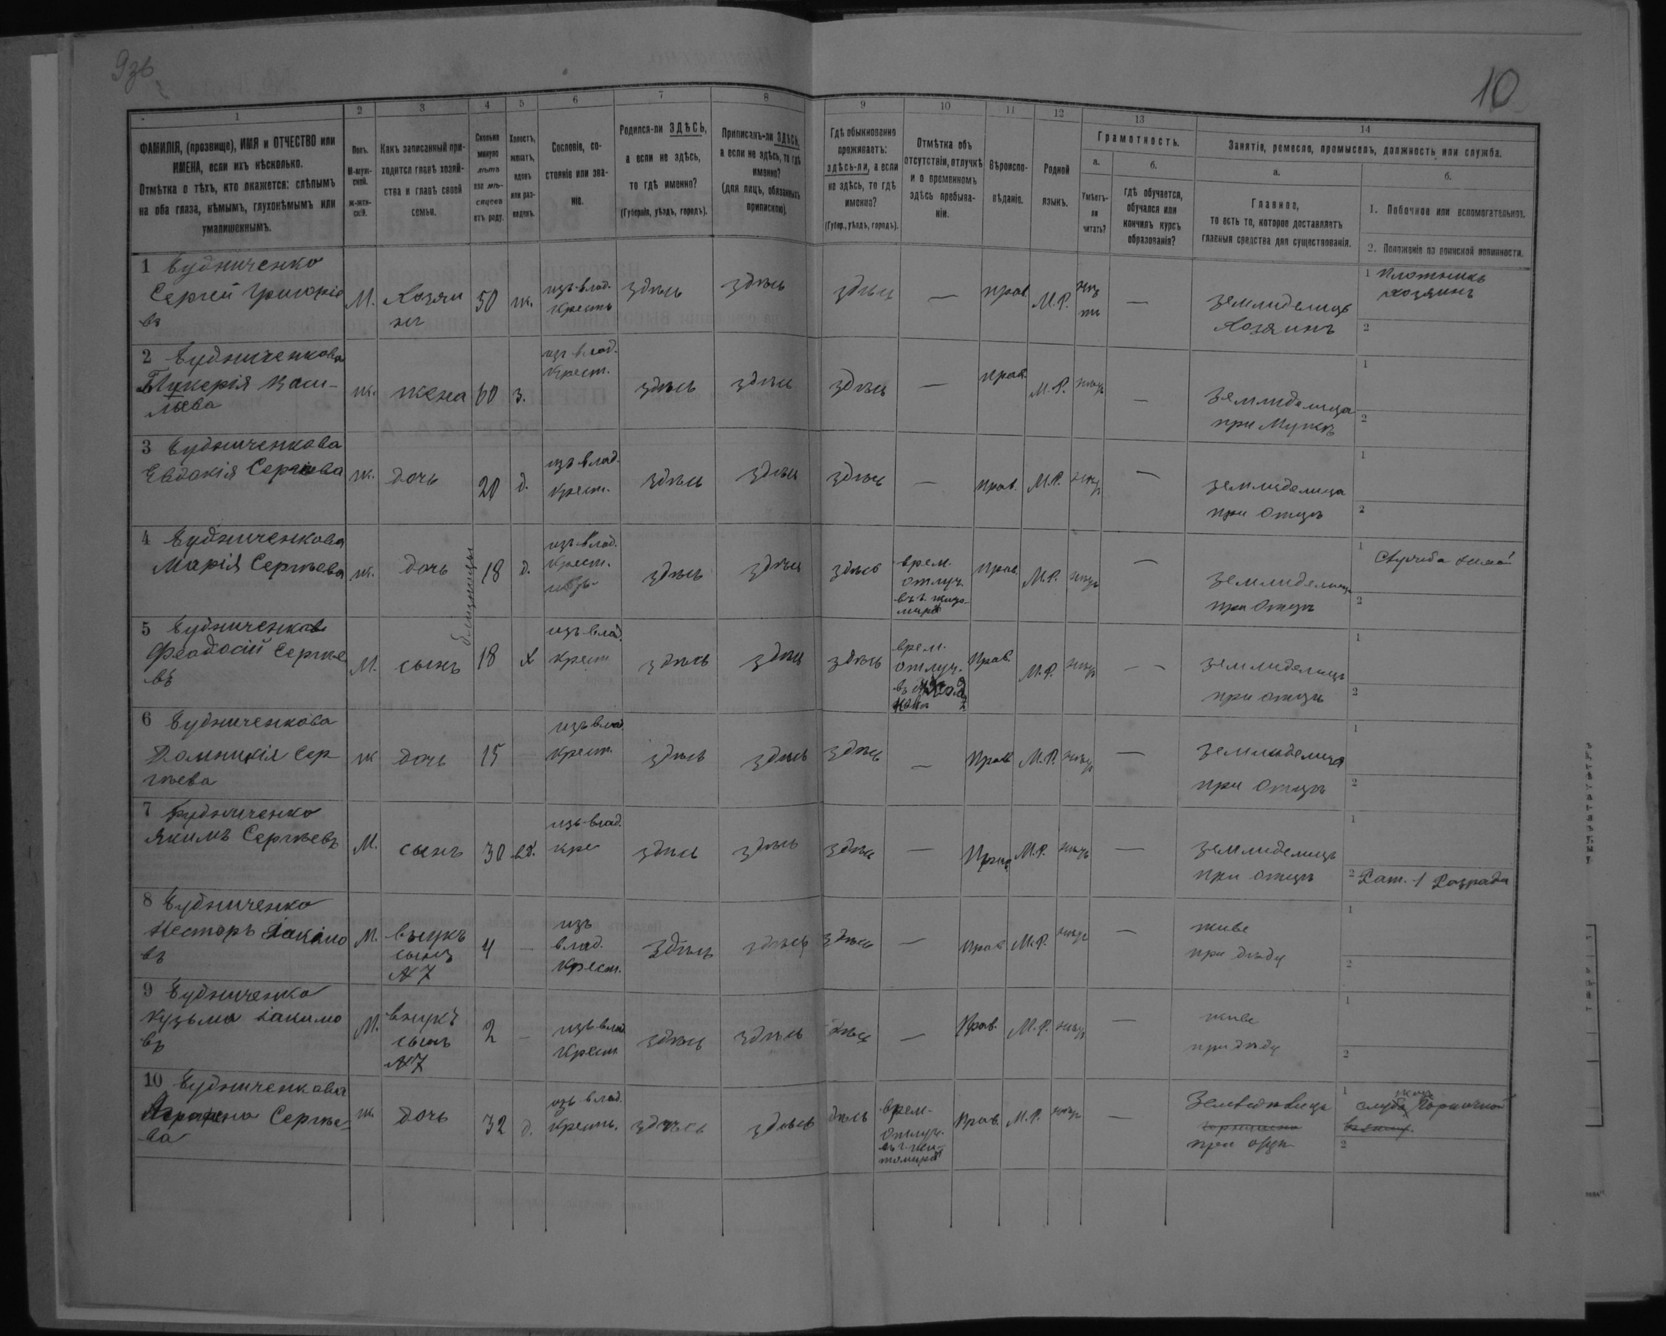 9зв
10
1
2
3
4
5
6
7
8
9
10
11
12
13
14
ФАМИЛІЯ, (прозвище), ИМЯ и ОТЧЕСТВО или
ИМЕНА, если ихъ нѣсколько.
Отмѣтка о тѣхъ, кто окажется: слѣпымъ
на оба глаза, нѣмымъ, глухонѣмымъ или
умалишеннымъ.
Полъ.
М-муж-
ской.
ж-жен-
скій.
Какъ записанный при-
ходится главѣ хозяй-
ства и главѣ своей
семьи.
Сколько
минуло
лѣтъ
или мѣ-
сяцевъ
отъ роду.
Холостъ,
женатъ,
вдовъ
или раз-
веденъ.
Сословіе, со-
стояніе или зва-
ніе.
Родился-ли ЗДѢСЬ,
а если не здѣсь,
то гдѣ именно?
(Губернія, уѣздъ, городъ).
Приписанъ-ли ЗДѢСЬ,
а если не здѣсь, то гдѣ
именно?
(для лицъ, обязанныхъ
припискою).
Гдѣ обыкновенно
проживаетъ:
здѣсь-ли, а если
не здѣсь, то гдѣ
именно?
(Губер., уѣздъ, городъ).
Отмѣтка объ
отсутствіи, отлучкѣ
и о временномъ
здѣсь пребыва-
ніи.
Вѣроиспо-
вѣданіе.
Родной
языкъ.
Грамотность.
а.
Умѣетъ-
ли
читать?
б.
гдѣ обучается,
обучался или
кончилъ курсъ
образованія?
Занятіе, ремесло, промыселъ, должность или служба.
а.
Главное,
то есть то, которое доставляетъ
главныя средства для существованія.
б.
1. Побочное или вспомогательное.
2. Положеніе по воинской повинности.
1 Будниченко
Сергей Григорие
въ
М.
Хозяи
нъ
50
ж.
изъ влад.
Крест.
здѣсь
здѣсь
здѣсь
—
прав
М.Р.
—
землиделицъ
Хозяинъ
1 Плотникъ
хозяинъ
2
2 Будниченкова
Гликерія Васи-
льева
ж.
жена
60
з.
изъ влад.
Крест.
здѣсь
здѣсь
здѣсь
—
Прав.
М.Р.
—
землиделица
при Мужѣ
1
2
3 Будниченкова
Евдокія Сергѣева
ж.
дочь
20
д.
изъ влад.
Крест.
здѣсь
здѣсь
здѣсь
—
Прав.
М.Р.
—
землиделица
при отцѣ
1
2
4 Будниченкова
Марія Сергѣева
ж.
дочь
близнецы
18
д.
изъ влад.
Крест.
здѣсь
здѣсь
здѣсь
врем.
отлуч.
Прав
М.Р.
—
землиделица
при отцѣ
1
2
5 Будниченковъ
Феодосій Сергѣе
въ
М.
сынъ
18
х
изъ влад.
Крест
здѣсь
здѣсь
здѣсь
врем.
отлуч.
Прав.
М.Р.
— —
землиделицъ
при отцѣ
1
2
6 Будниченкова
Домникія Сер-
гѣева
ж
дочь
15
—
изъ влад
Крест
здѣсь
здѣсь
здѣсь
—
Прав
М.Р.
—
землиделица
при отцѣ
1
2
7 Будниченко
Якимъ Сергѣевъ
М.
сынъ
30
вд.
изъ влад.
Кре
здѣсь
здѣсь
здѣсь
—
Прав
М.Р.
—
землиделицъ
при отцѣ
1
2 Рат. 1 Розряда
8 Будниченко
Несторъ Іакимо
въ
М.
внукъ
сынъ
№ 7
4
—
изъ
влад.
Крест.
здѣсь
здѣсь
здѣсь
—
Прав
М.Р.
—
живе
при диду
1
2
9 Будниченко
Кузьма Іакимо
въ
М.
внукъ
сынъ
№ 7
2
—
изъ влад
Крест
здѣсь
здѣсь
здѣсь
—
Прав.
М.Р.
—
живе
при диду
1
2
10 Будниченкова
Сергѣе-
ва
ж
дочь
32
д.
изъ влад.
Крест.
здѣсь
здѣсь
здѣсь
врем.
отлуч.
въ г. Жи-
томирѣ
Прав.
М.Р.
—
при отцѣ
1
горничной
2